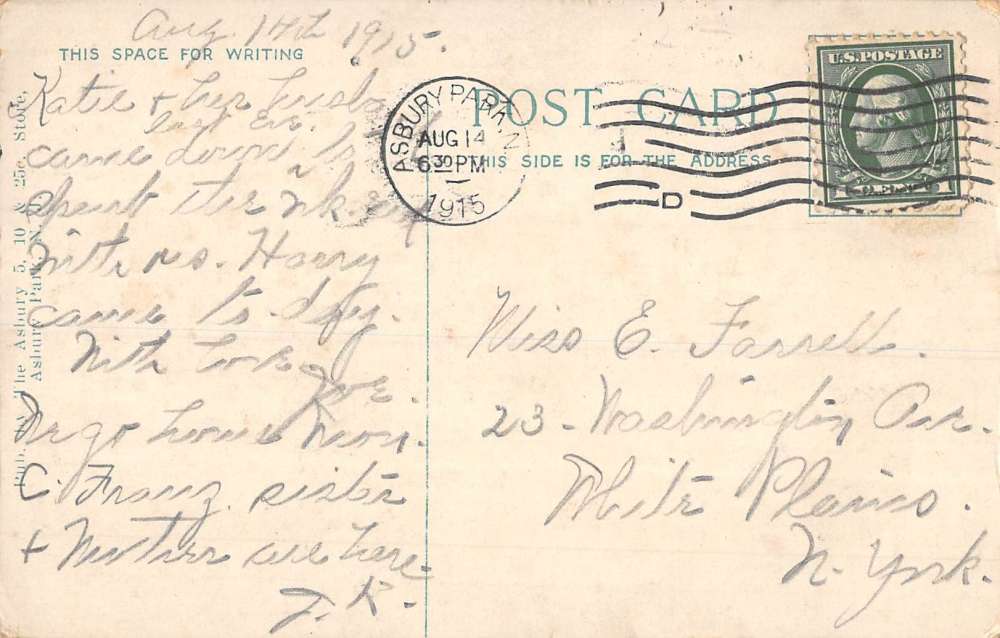 Aug. 14th 1915.
THIS SPACE FOR WRITING
Katie + her husba
last Eve.
came down to
spend the wk end
with us. Harry
came to-day.
With love
Joe.
We go home Mon.
C. Franz sister
+ Mother are here.
J. R.
Pub. by The Asbury 5, 10 & 25c. Store,
Asbury Park, N. J.
POST CARD
THIS SIDE IS FOR THE ADDRESS
ASBURY PARK, N
AUG 14
6 30 PM
1915
D
U.S. POSTAGE
1
Miss E. Farrell.
23 - Washington Ave.
White Plains.
N. York.